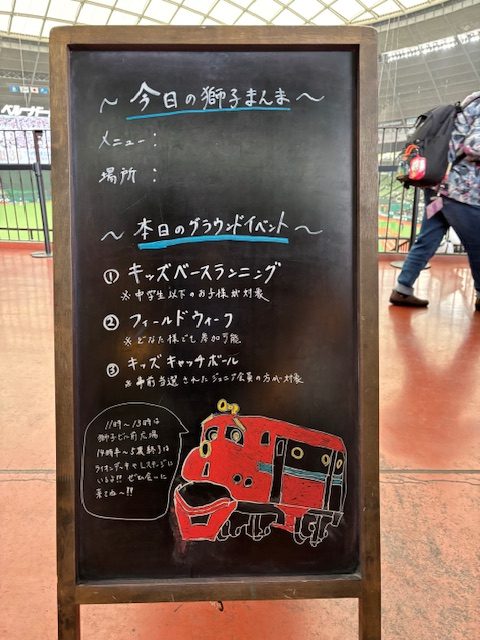 ベルーナ
~今日の獅子まんま~
メニュー:
場所:
~本日のグラウンドイベント~
① キッズベースランニング
※中学生以下のお子様が対象
② フィールドウォーク
※どなた様でも参加可能
③ キッズキャッチボール
※事前当選されたジュニア会員の方が対象
11時~13時は
獅子ビル前広場
14時半~5裏終了は
ライオンデッキやLステージに
いるよ!! ぜひ会いに
来てね~!!